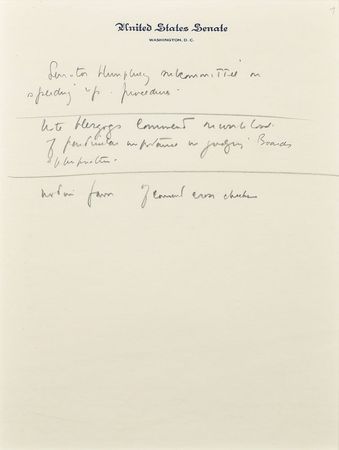 United States Senate
WASHINGTON, D.C.
Senator Humphrey subcommittee on
speeding up procedure.
Note Herzogs Comment on workload
of particular importance in judging Boards
not in favor of consent cross checks